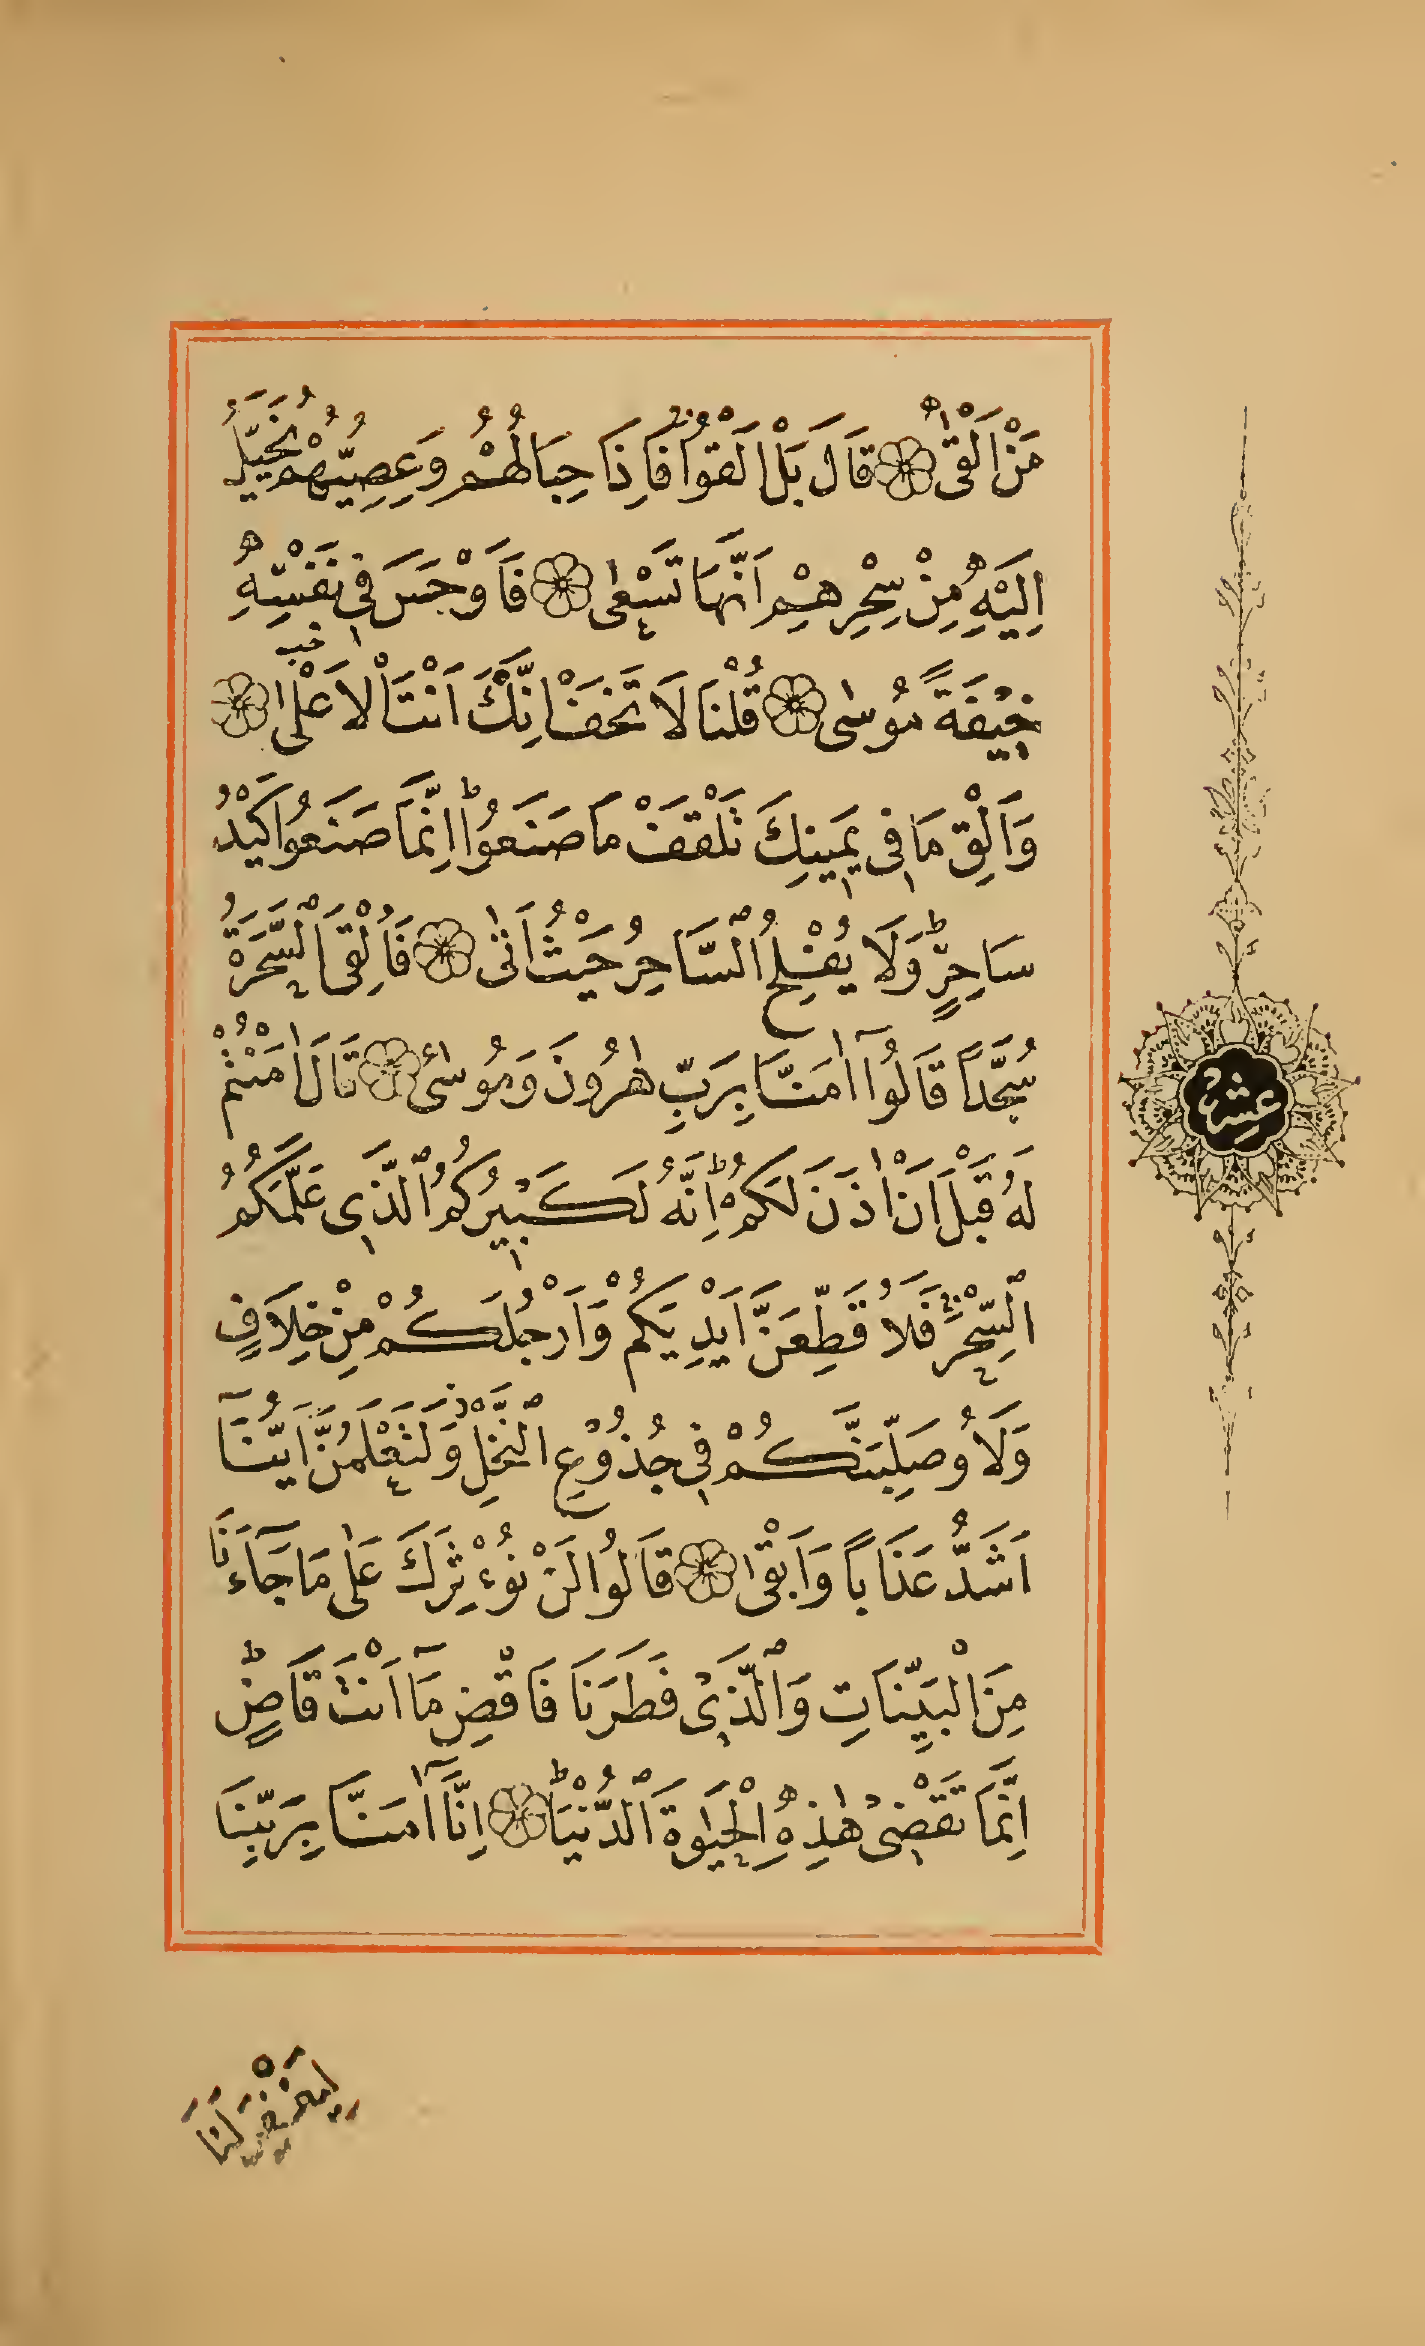 مَنْ اَلْقٰى ۝ قَالَ بَلْ اَلْقُوْا فَاِذَا حِبَالُهُمْ وَعِصِيُّهُمْ يُخَيَّلُ
اِلَيْهِ مِنْ سِحْرِهِمْ اَنَّهَا تَسْعٰى ۝ فَاَوْجَسَ فِى نَفْسِهِ
خِيْفَةً مُوسٰى ۝ قُلْنَا لَا تَخَفْ اِنَّكَ اَنْتَ الْاَعْلٰى ۝
وَاَلْقِ مَا فِى يَمِينِكَ تَلْقَفْ مَا صَنَعُوْا ط اِنَّمَا صَنَعُوا كَيْدُ
سَاحِرٍ ط وَلَا يُفْلِحُ السَّاحِرُ حَيْثُ اَتٰى ۝ فَاُلْقِىَ السَّحَرَةُ
سُجَّدًا قَالُوٓا اٰمَنَّا بِرَبِّ هٰرُونَ وَمُوسٰى ۝ قَالَ اٰمَنْتُمْ
لَهُ قَبْلَ اَنْ اٰذَنَ لَكُمْ ط اِنَّهُ لَكَبِيْرُكُمُ الَّذِى عَلَّمَكُمُ
السِّحْرَ فَلَاُقَطِّعَنَّ اَيْدِيَكُمْ وَاَرْجُلَكُمْ مِنْ خِلَافٍ
وَلَاُوصَلِّبَنَّكُمْ فِى جُذُوْعِ النَّخْلِ وَلَتَعْلَمُنَّ اَيُّنَآ
اَشَدُّ عَذَابًا وَاَبْقٰى ۝ قَالُوا لَنْ نُوْءْثِرَكَ عَلٰى مَا جَآءَنَا
مِنَ الْبَيِّنَاتِ وَالَّذِىْ فَطَرَنَا فَاقْضِ مَآ اَنْتَ قَاضٍ ط
اِنَّمَا تَقْضِىْ هٰذِهِ الْحَيٰوةَ الدُّنْيَا ط ۝ اِنَّآ اٰمَنَّا بِرَبِّنَا
عشر
لِيَغْفِرَ لَنَا